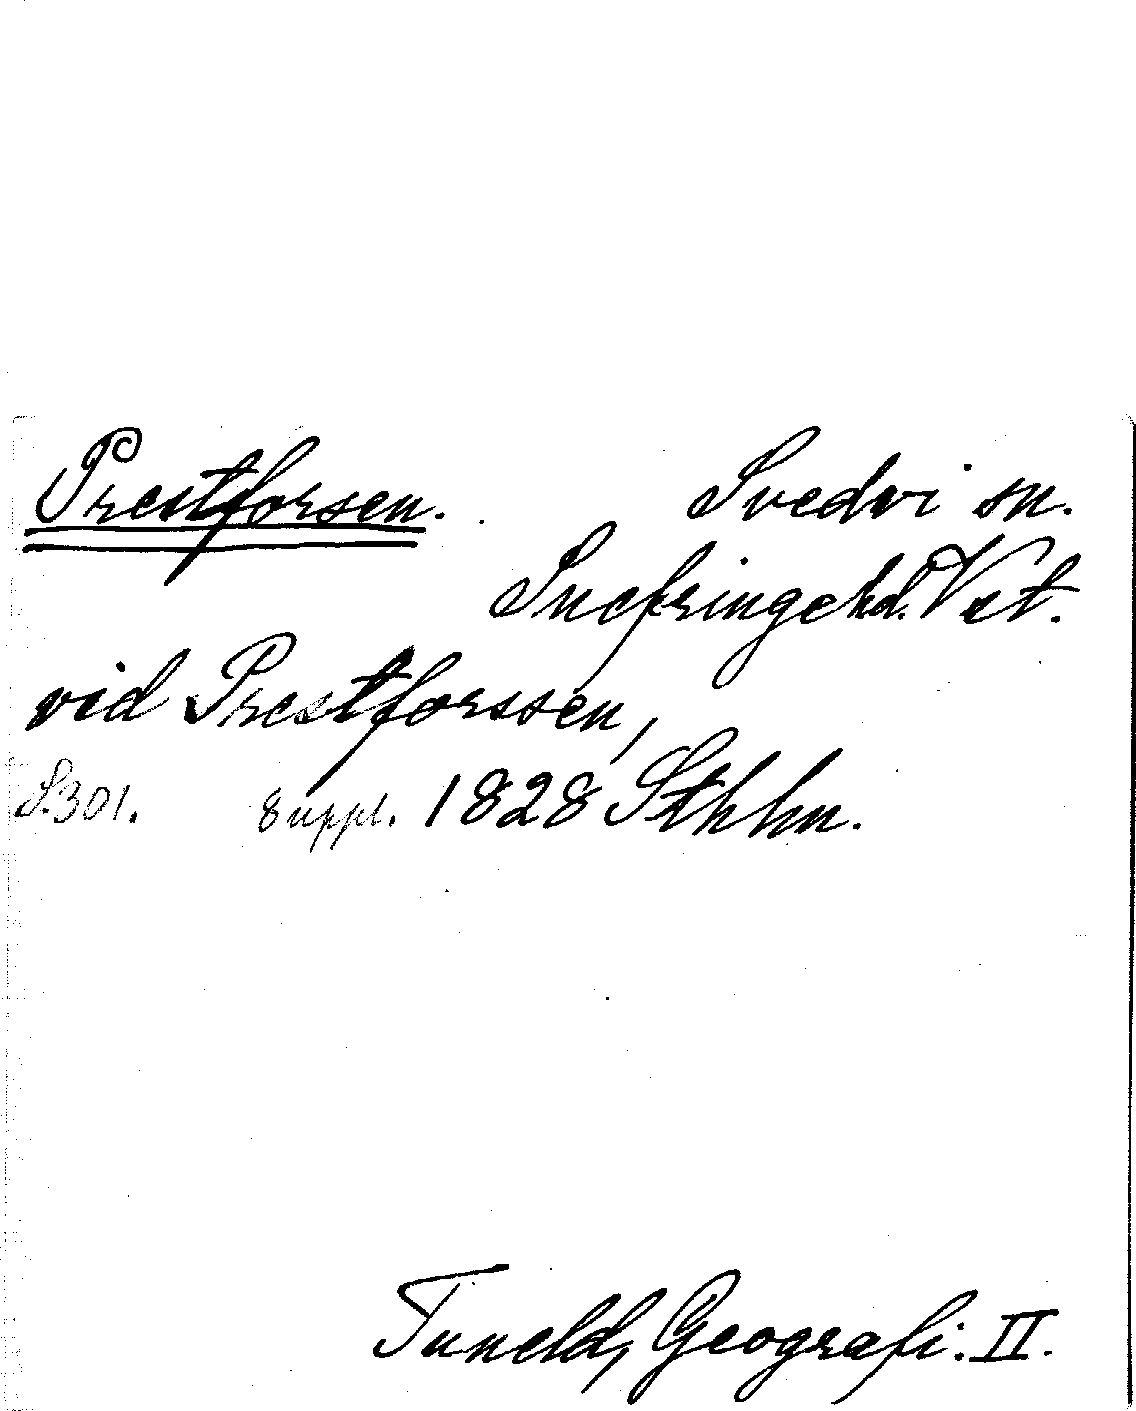 Prestforsen. Svedvi sn.
Snefringe hd. Vst.
vid Prestforssen,
S.301. Suppl. 1828 Sthhn.
Tuneld, Geografi. II.